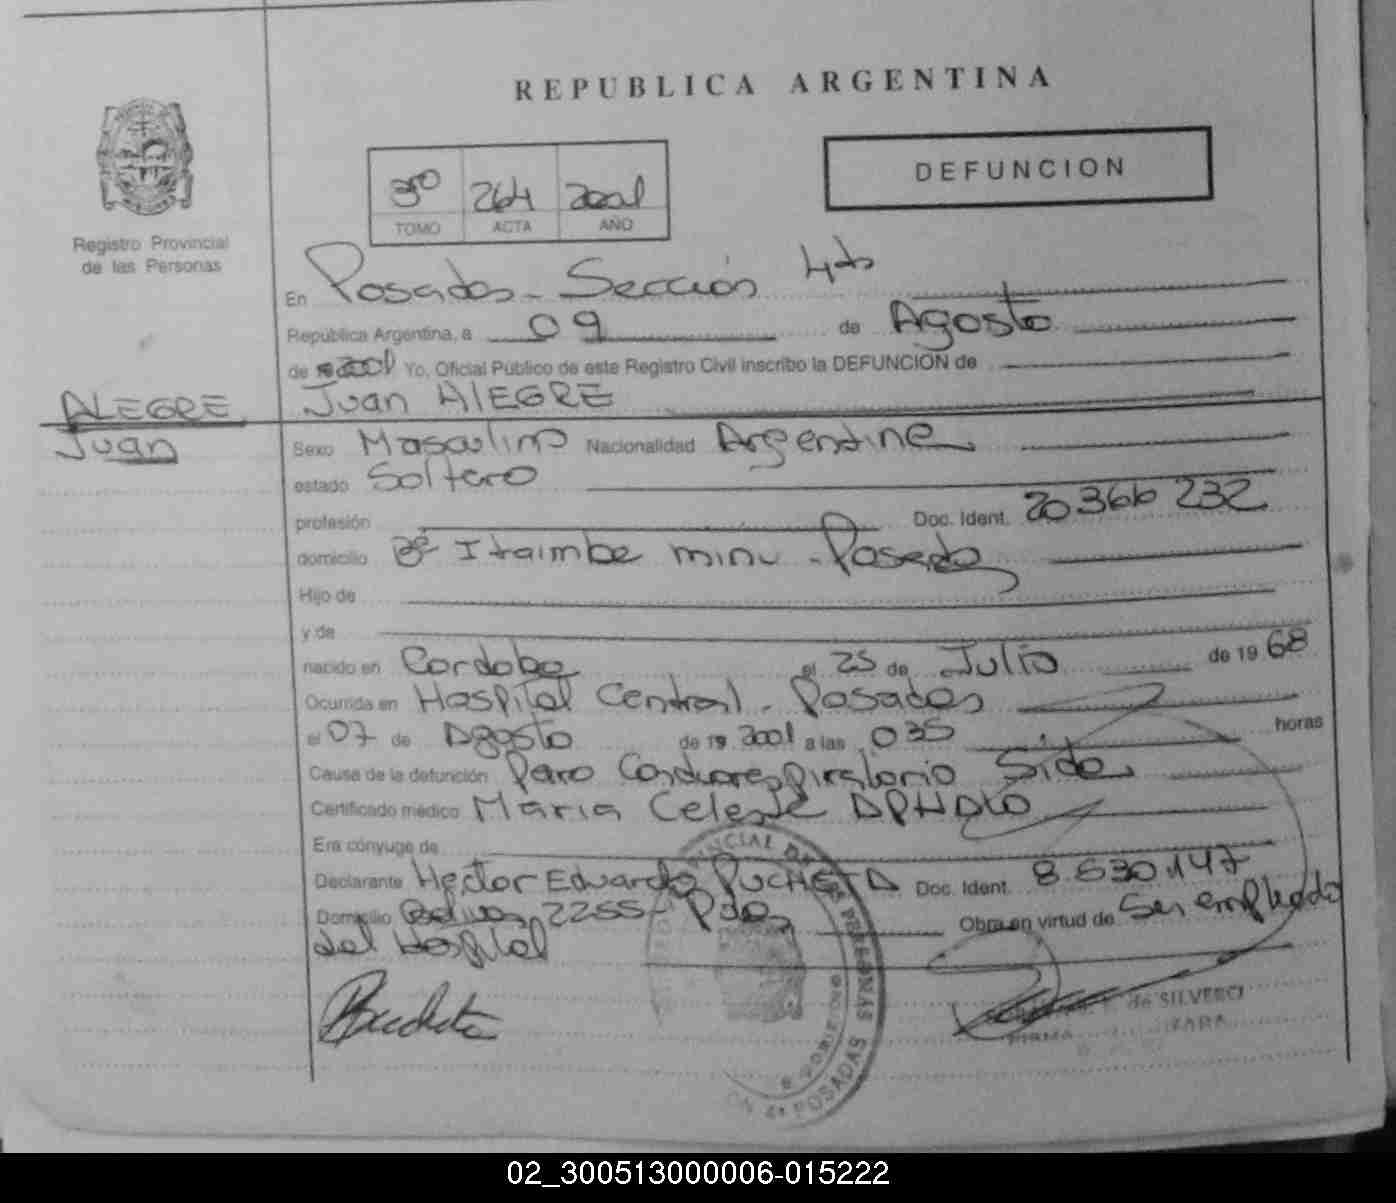 REPUBLICA ARGENTINA
DEFUNCION
3º 264 2001
TOMO ACTA AÑO
Registro Provincial
de las Personas
En Posadas - Sección 4ta
República Argentina, a 09 de Agosto
de 2001 Yo, Oficial Público de este Registro Civil inscribo la DEFUNCION de
ALEGRE Juan ALEGRE
Juan
Sexo Masculino Nacionalidad Argentine
estado Soltero
profesión Doc. Ident. 20 366 232
domicilio Bº Itaimbe mini - Posadas
Hijo de
y de
nacido en Cordoba el 25 de Julio de 19 68
Ocurrida en Hospital Central - Posadas
el 07 de Agosto de 19 2001 a las 035 horas
Causa de la defunción Paro Cardiorespiratorio Sida
Certificado médico Maria Celeste
Era cónyuge de
Declarante Hector Eduardo PUCHETA Doc. Ident. 8.630.147
Domicilio Bolivar 2255 - Pdas Obra en virtud de Ser empleado
del Hospital
de SILVERO
FIRMA
POSADAS
02_300513000006-015222